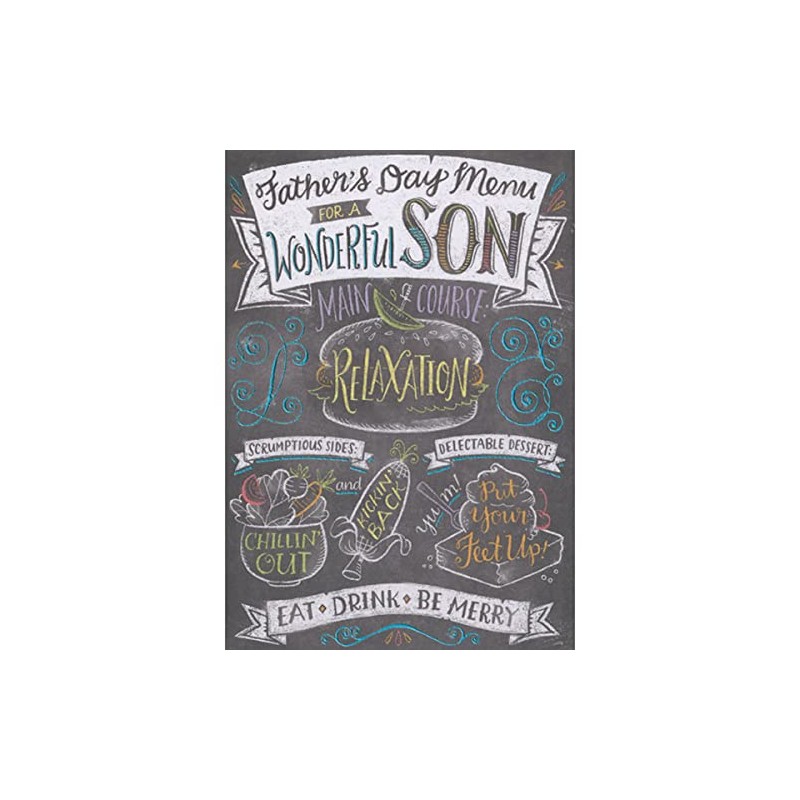 Father's Day Menu
FOR A
WONDERFUL SON
MAIN COURSE:
RELAXATION
SCRUMPTIOUS SIDES:
DELECTABLE DESSERT:
CHILLIN' OUT
and
KICKIN' BACK
yum!
Put Your Feet Up!
EAT • DRINK • BE MERRY